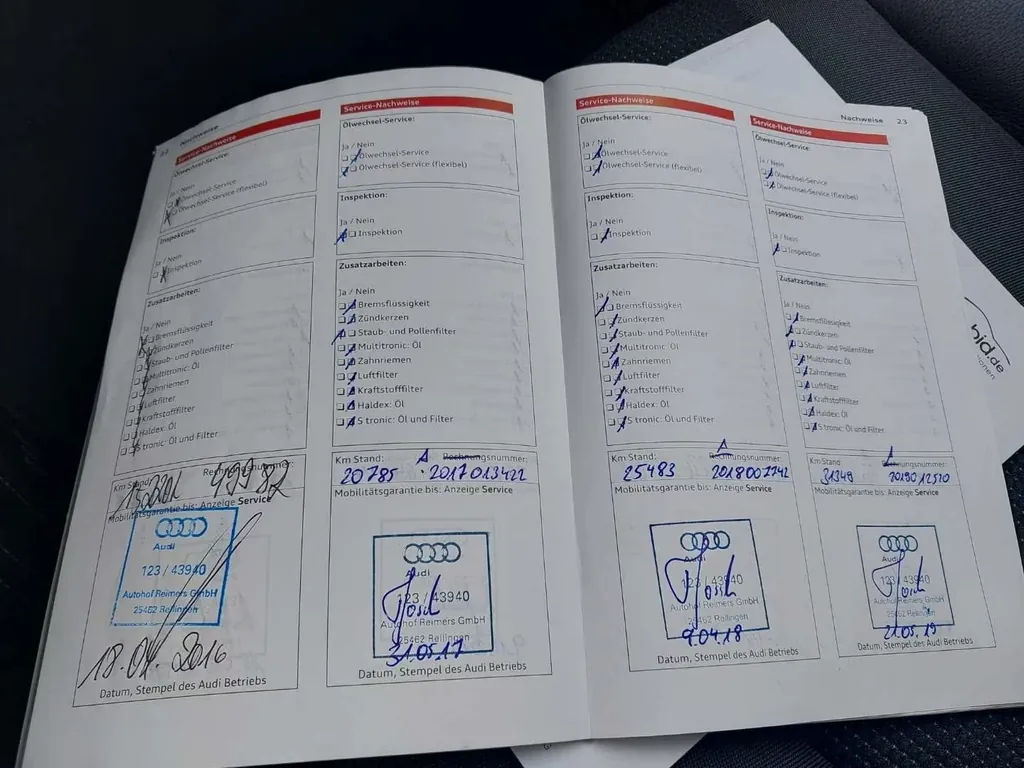 Nachweise
Service-Nachweise
Ölwechsel-Service:
Ja / Nein
Ölwechsel-Service
Ölwechsel-Service (flexibel)
Inspektion:
Ja / Nein
Inspektion
Zusatzarbeiten:
Ja / Nein
Bremsflüssigkeit
Zündkerzen
Staub- und Pollenfilter
Multitronic: Öl
Zahnriemen
Luftfilter
Kraftstofffilter
Haldex: Öl
S tronic: Öl und Filter
Km Stand: Rechnungsnummer:
Mobilitätsgarantie bis: Anzeige Service
Audi
123 / 43940
Autohof Reimers GmbH
25462 Rellingen
18.04.2016
Datum, Stempel des Audi Betriebs
Service-Nachweise
Ölwechsel-Service:
Ja / Nein
Ölwechsel-Service
Ölwechsel-Service (flexibel)
Inspektion:
Ja / Nein
Inspektion
Zusatzarbeiten:
Ja / Nein
Bremsflüssigkeit
Zündkerzen
Staub- und Pollenfilter
Multitronic: Öl
Zahnriemen
Luftfilter
Kraftstofffilter
Haldex: Öl
S tronic: Öl und Filter
Km Stand: A Rechnungsnummer:
20785 2017013422
Mobilitätsgarantie bis: Anzeige Service
Audi
123 / 43940
Autohof Reimers GmbH
25462 Rellingen
31.05.17
Datum, Stempel des Audi Betriebs
Service-Nachweise
Ölwechsel-Service:
Ja / Nein
Ölwechsel-Service
Ölwechsel-Service (flexibel)
Inspektion:
Ja / Nein
Inspektion
Zusatzarbeiten:
Ja / Nein
Bremsflüssigkeit
Zündkerzen
Staub- und Pollenfilter
Multitronic: Öl
Zahnriemen
Luftfilter
Kraftstofffilter
Haldex: Öl
S tronic: Öl und Filter
Km Stand: A Rechnungsnummer:
25483
Mobilitätsgarantie bis: Anzeige Service
Audi
123 / 43940
Autohof Reimers GmbH
25462 Rellingen
9.04.18
Datum, Stempel des Audi Betriebs
Nachweise 23
Service-Nachweise
Ölwechsel-Service:
Ja / Nein
Ölwechsel-Service
Ölwechsel-Service (flexibel)
Inspektion:
Ja / Nein
Inspektion
Zusatzarbeiten:
Ja / Nein
Bremsflüssigkeit
Zündkerzen
Staub- und Pollenfilter
Multitronic: Öl
Zahnriemen
Luftfilter
Kraftstofffilter
Haldex: Öl
S tronic: Öl und Filter
Km Stand Rechnungsnummer:
31349
Mobilitätsgarantie bis: Anzeige Service
Audi
123 / 43940
Autohof Reimers GmbH
25462 Rellingen
21.05.19
Datum, Stempel des Audi Betriebs
hjd.de